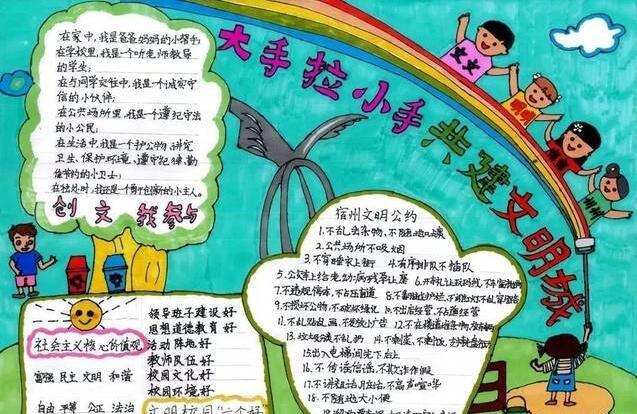 在家中,我是爸爸妈妈的小帮手;
在学校里,我是一个听老师教导
的学生;
在与同学交往中,我是一个诚实守
信的小伙伴;
在公共场所里,我是一个遵纪守法
的小公民;
在生活中,我是一个护公物、讲究
卫生、保护环境、遵守纪律、勤
俭节约的小卫士;
在独处时,我还是一个勇于创新的小主人。
创文我参与
大手拉小手共建文明城
文文
明明
宿州文明公约
1.不乱丢杂物、不随地吐痰
2.公共场所不吸烟
3.不穿睡衣上街
4.有序排队不插队
5.公交车上给老幼病残孕让座
7.不违规停车、不占盲道
9.不损坏公物、不破坏绿化
10.不出店经营、不占道经营
11.不乱贴乱画、不发放小广告
12.不在楼道堆杂物
13.垃圾袋不乱扔
15.出入电梯间先下后上
16.不传谣信谣、不
17.不讲粗话月脏话、不高声喧哗
18.不随地大小便
社会主义核心价值观
富强 民主 文明 和谐
自由 平等 公正 法治
领导班子建设好
思想道德教育好
活动阵地好
教师队伍好
校园文化好
校园环境好
文明校园"六个好"